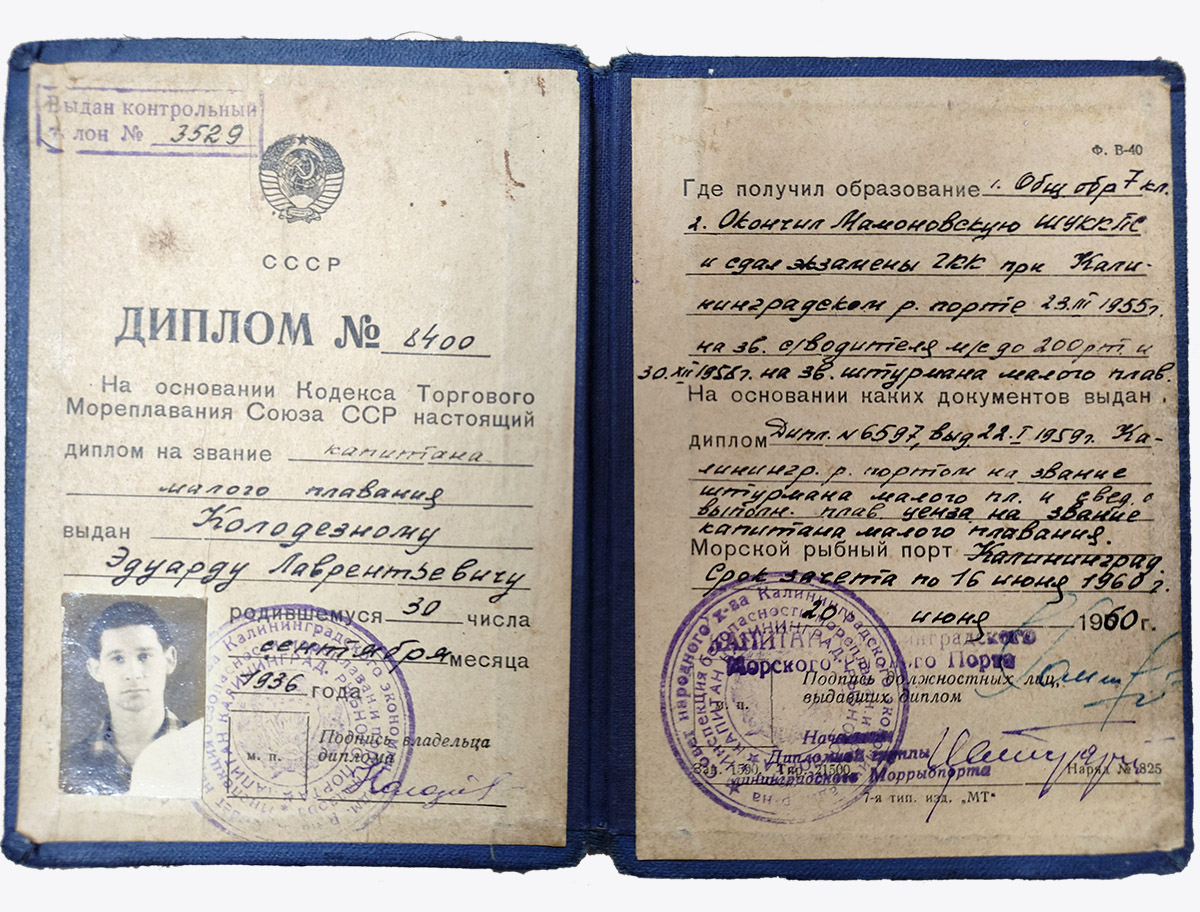 Выдан контрольный
талон № 3529
СССР
ДИПЛОМ № 8400
На основании Кодекса Торгового
Мореплавания Союза ССР настоящий
диплом на звание капитана
малого плавания
выдан Колодезному
Эдуарду Лаврентьевичу
родившемуся 30 числа
сентября месяца
1936 года
м. п.
Подпись владельца
диплома
Ф. В-40
Где получил образование 1. Общ обр 7 кл.
2. Окончил Мамоновскую ШУККПС
и сдал экзамены ГКК при Кали-
нинградском р. порте 23.III 1955г.
на зв. с/водителя м/с до 200 рт. и
30.XII 1958г. на зв. штурмана малого плав.
На основании каких документов выдан
диплом Дипл. № 6597, выд 22.I 1959г. Ка-
лининг. р. портом на звание
штурмана малого пл. и свед. о
выполн. плав. ценза на звание
капитана малого плавания.
Морской рыбный порт Калининград
Срок зачета по 16 июня 1960 г.
20 июня 1960 г.
КАПИТАН
Морского Порта
Подпись должностных лиц,
выдавших диплом
м. п.
Дипломной группы
Калининградского Моррыбпорта
Зак. 1590 Тир. 21500 Наряд № 1825
7-я тип. изд. „МТ“